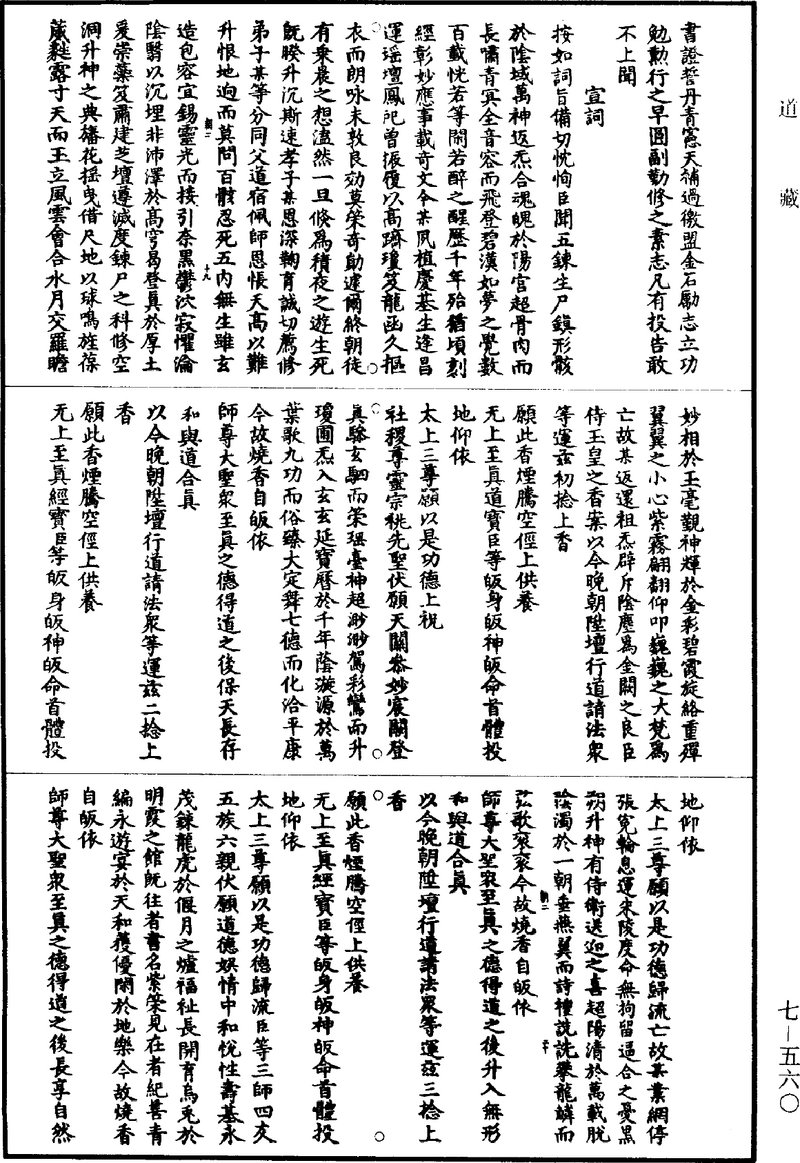 道藏
書證誓丹青寫天補過徼盟金石勵志立功
勉勳行之早圓副勤修之素志凡有投告敢
不上聞
宣詞
按如詞旨備切忱恂臣聞五鍊生尸鎮形骸
於陰域萬神返炁合魂魄於陽宮超骨肉而
長嘯青冥全音容而飛登碧漢如夢之覺數
百載恍若等閑若醉之醒歷千年殆猶頃刻
經彰妙應事載奇文今某夙植慶基生逢昌
運瑶壇鳳祀曾振履以高躋瓊笈龍函久摳
衣而朗咏未敦良効莫策奇勛遽爾終朝徒
有乗晨之想溘然一旦倏爲積夜之遊生死
旣睽升沉斯速孝子某恩深鞠育誠切薦修
弟子某等分同父道宿佩師恩悵天高以難
升恨地逈而莫問百骸忍死五内無生雖玄
造包容宜錫靈光而接引奈黑鬱㳄寂懼淪
陰翳以沉埋非沛澤於髙穹曷登眞於厚土
爰崇藥笈肅建芝壇遵滅度鍊尸之科修空
洞升神之典旛花摇曳借尺地以球鳴旌葆
葳蕤露寸天而玉立風雲會合水月交羅瞻
妙相於玉毫覩神輝於金彩碧霞旋絡重殫
翼翼之小心紫霧翩翻仰叩巍巍之大梵爲
亡故某返還祖炁辟斥陰塵爲金闕之良臣
侍玉皇之香案以今晚朝陞壇行道請法衆
等運兹初捻上香
願此香煙騰空徑上供養
无上至眞道寶臣等皈身皈神皈命首體投
地仰依
太上三尊願以是功德上祝
社稷尊靈宗祧先聖伏願天關叅妙宸闕登
眞驂玄駟而策瑶臺神超渺渺駕彩鸞而升
瓊圃炁入玄玄延寶曆於千年蔭璇源於萬
葉歌九功而俗臻大定舞七德而化洽平康
今故燒香自皈依
師尊大聖衆至眞之德得道之後保天長存
和與道合眞
以今晚朝陞壇行道請法衆等運兹二捻上
香
願此香煙騰空徑上供養
无上至眞經寶臣等皈身皈神皈命首體投
地仰依
太上三尊願以是功德歸流亡故某業網停
張寃輪息運宋陵度命無拘留逼合之憂黒
朔升神有侍衛送迎之喜超陽清於萬載脱
陰濁於一朝垂燕翼而詩禮詵詵攀龍鱗而
弦歌衮衮今故燒香自皈依
師尊大聖衆至眞之德得道之後升入無形
和與道合眞
以今晚朝陞壇行道請法衆等運兹三捻上
香
願此香煙騰空徑上供養
无上至眞經寶臣等皈身皈神皈命首體投
地仰依
太上三尊願以是功德歸流臣等三師四友
五族六親伏願道德娱情中和悅性壽基永
茂鍊龍虎於偃月之爐福祉長開育烏兎於
明霞之館旣往者書名紫策見在者紀善青
編永遊宴於天和獲優閑於地樂今故燒香
自皈依
師尊大聖衆至眞之德得道之後長享自然
七—五六〇